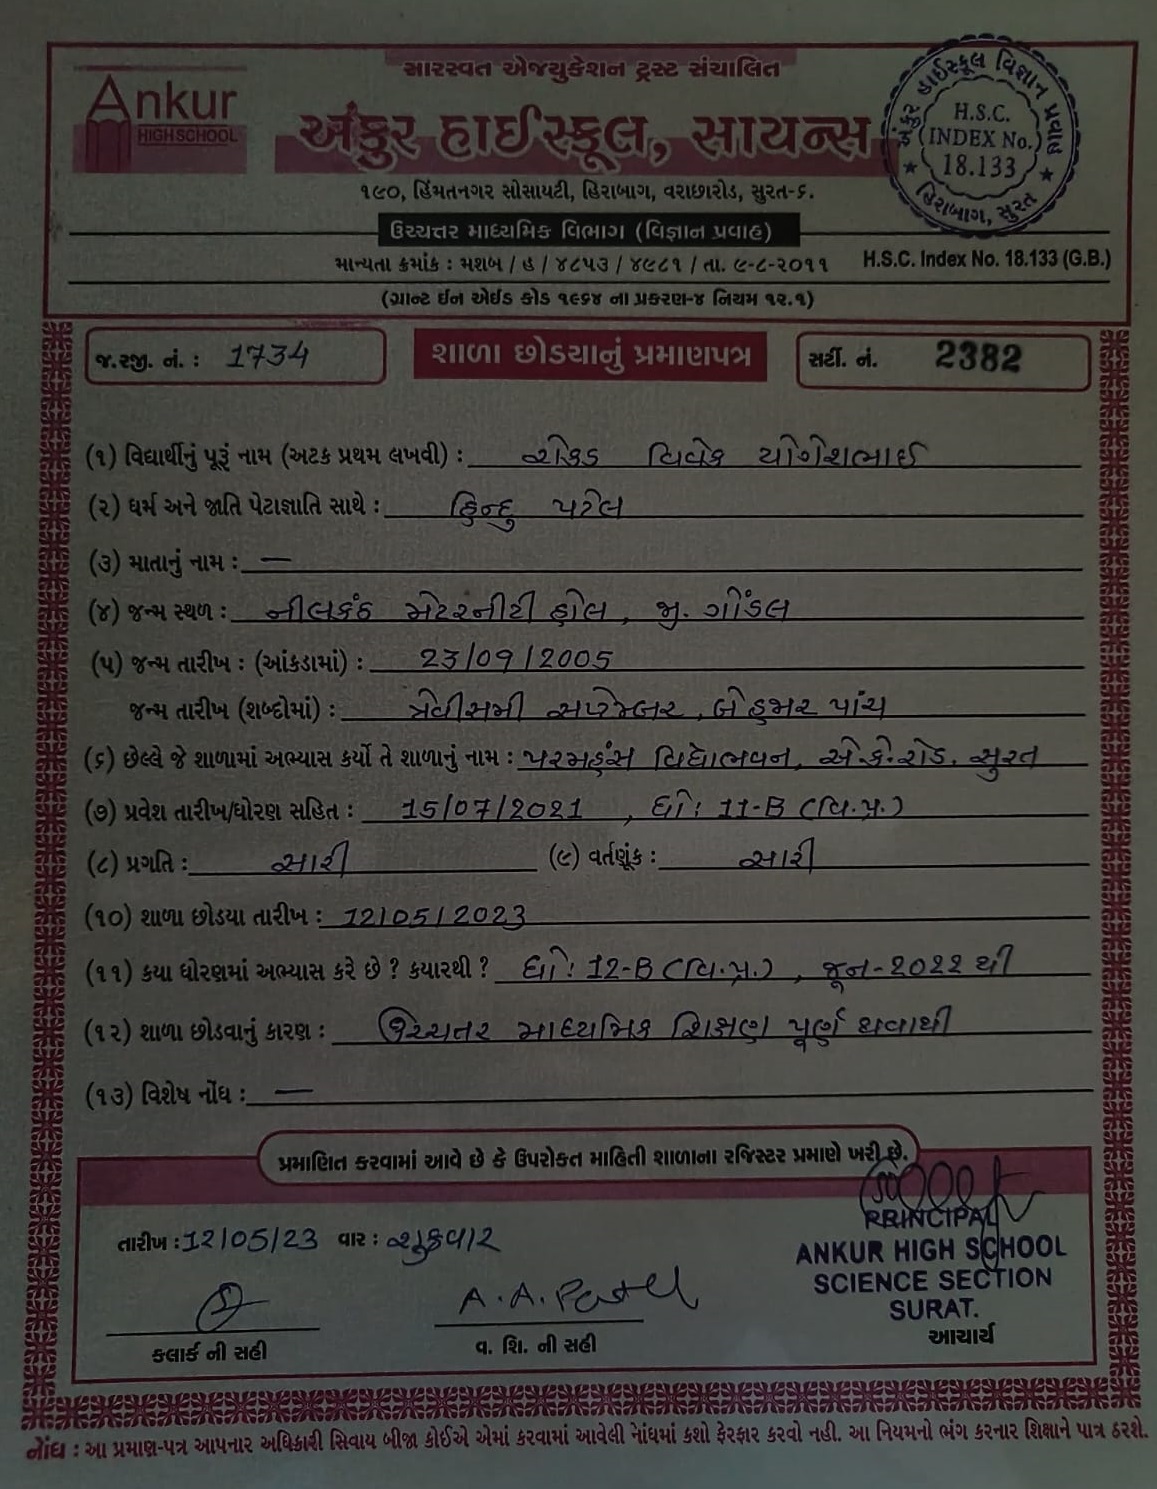 સારસ્વત એજ્યુકેશન ટ્રસ્ટ સંચાલિત
Ankur
HIGH SCHOOL
અંકુર હાઈસ્કૂલ, સાયન્સ
અંકુર હાઈસ્કૂલ વિજ્ઞાન પ્રવાહ
H.S.C.
INDEX No.
18.133
★ હિરાબાગ, સુરત ★
૧૯૦, હિંમતનગર સોસાયટી, હિરાબાગ, વરાછારોડ, સુરત-૬.
ઉચ્ચત્તર માધ્યમિક વિભાગ (વિજ્ઞાન પ્રવાહ)
માન્યતા ક્રમાંક : મશબ / હ / ૪૮૫૩ / ૪૯૮૧ / તા. ૯-૮-૨૦૧૧ H.S.C. Index No. 18.133 (G.B.)
(ગ્રાન્ટ ઈન એઈડ કોડ ૧૯૬૪ ના પ્રકરણ-૪ નિયમ ૧૨.૧)
જ.રજી. નં. : 1734 શાળા છોડયાનું પ્રમાણપત્ર સર્ટી. નં. 2382
(૧) વિદ્યાર્થીનું પૂરૂં નામ (અટક પ્રથમ લખવી) : રોકડ વિવેક યોગેશભાઈ
(૨) ધર્મ અને જાતિ પેટાજ્ઞાતિ સાથે : હિન્દુ પટેલ
(૩) માતાનું નામ : —
(૪) જન્મ સ્થળ : નીલકંઠ મેટરનીટી હોલ, જી. ગોંડલ
(૫) જન્મ તારીખ : (આંકડામાં) : 23/09/2005
જન્મ તારીખ (શબ્દોમાં) : ત્રેવીસમી સપ્ટેમ્બર, બે હજાર પાંચ
(૬) છેલ્લે જે શાળામાં અભ્યાસ કર્યો તે શાળાનું નામ : પરમહંસ વિદ્યાભવન, એ.કે.રોડ. સુરત
(૭) પ્રવેશ તારીખ/ધોરણ સહિત : 15/07/2021 , ધો: 11-B (વિ.પ્ર.)
(૮) પ્રગતિ : સારી (૯) વર્તણૂંક : સારી
(૧૦) શાળા છોડયા તારીખ : 12/05/2023
(૧૧) કયા ધોરણમાં અભ્યાસ કરે છે ? કયારથી ? ધો: 12-B (વિ.પ્ર.) , જૂન-2022 થી
(૧૨) શાળા છોડવાનું કારણ : ઉચ્ચતર માધ્યમિક શિક્ષણ પૂર્ણ થવાથી
(૧૩) વિશેષ નોંધ : —
પ્રમાણિત કરવામાં આવે છે કે ઉપરોકત માહિતી શાળાના રજિસ્ટર પ્રમાણે ખરી છે.
તારીખ : 12/05/23 વાર : શુક્રવાર
PRINCIPAL
ANKUR HIGH SCHOOL
SCIENCE SECTION
SURAT.
A. A. Patel
કલાર્ક ની સહી વ. શિ. ની સહી આચાર્ય
નોંધ : આ પ્રમાણ-પત્ર આપનાર અધિકારી સિવાય બીજા કોઈએ એમાં કરવામાં આવેલી નોંધમાં કશો ફેરફાર કરવો નહી. આ નિયમનો ભંગ કરનાર શિક્ષાને પાત્ર ઠરશે.